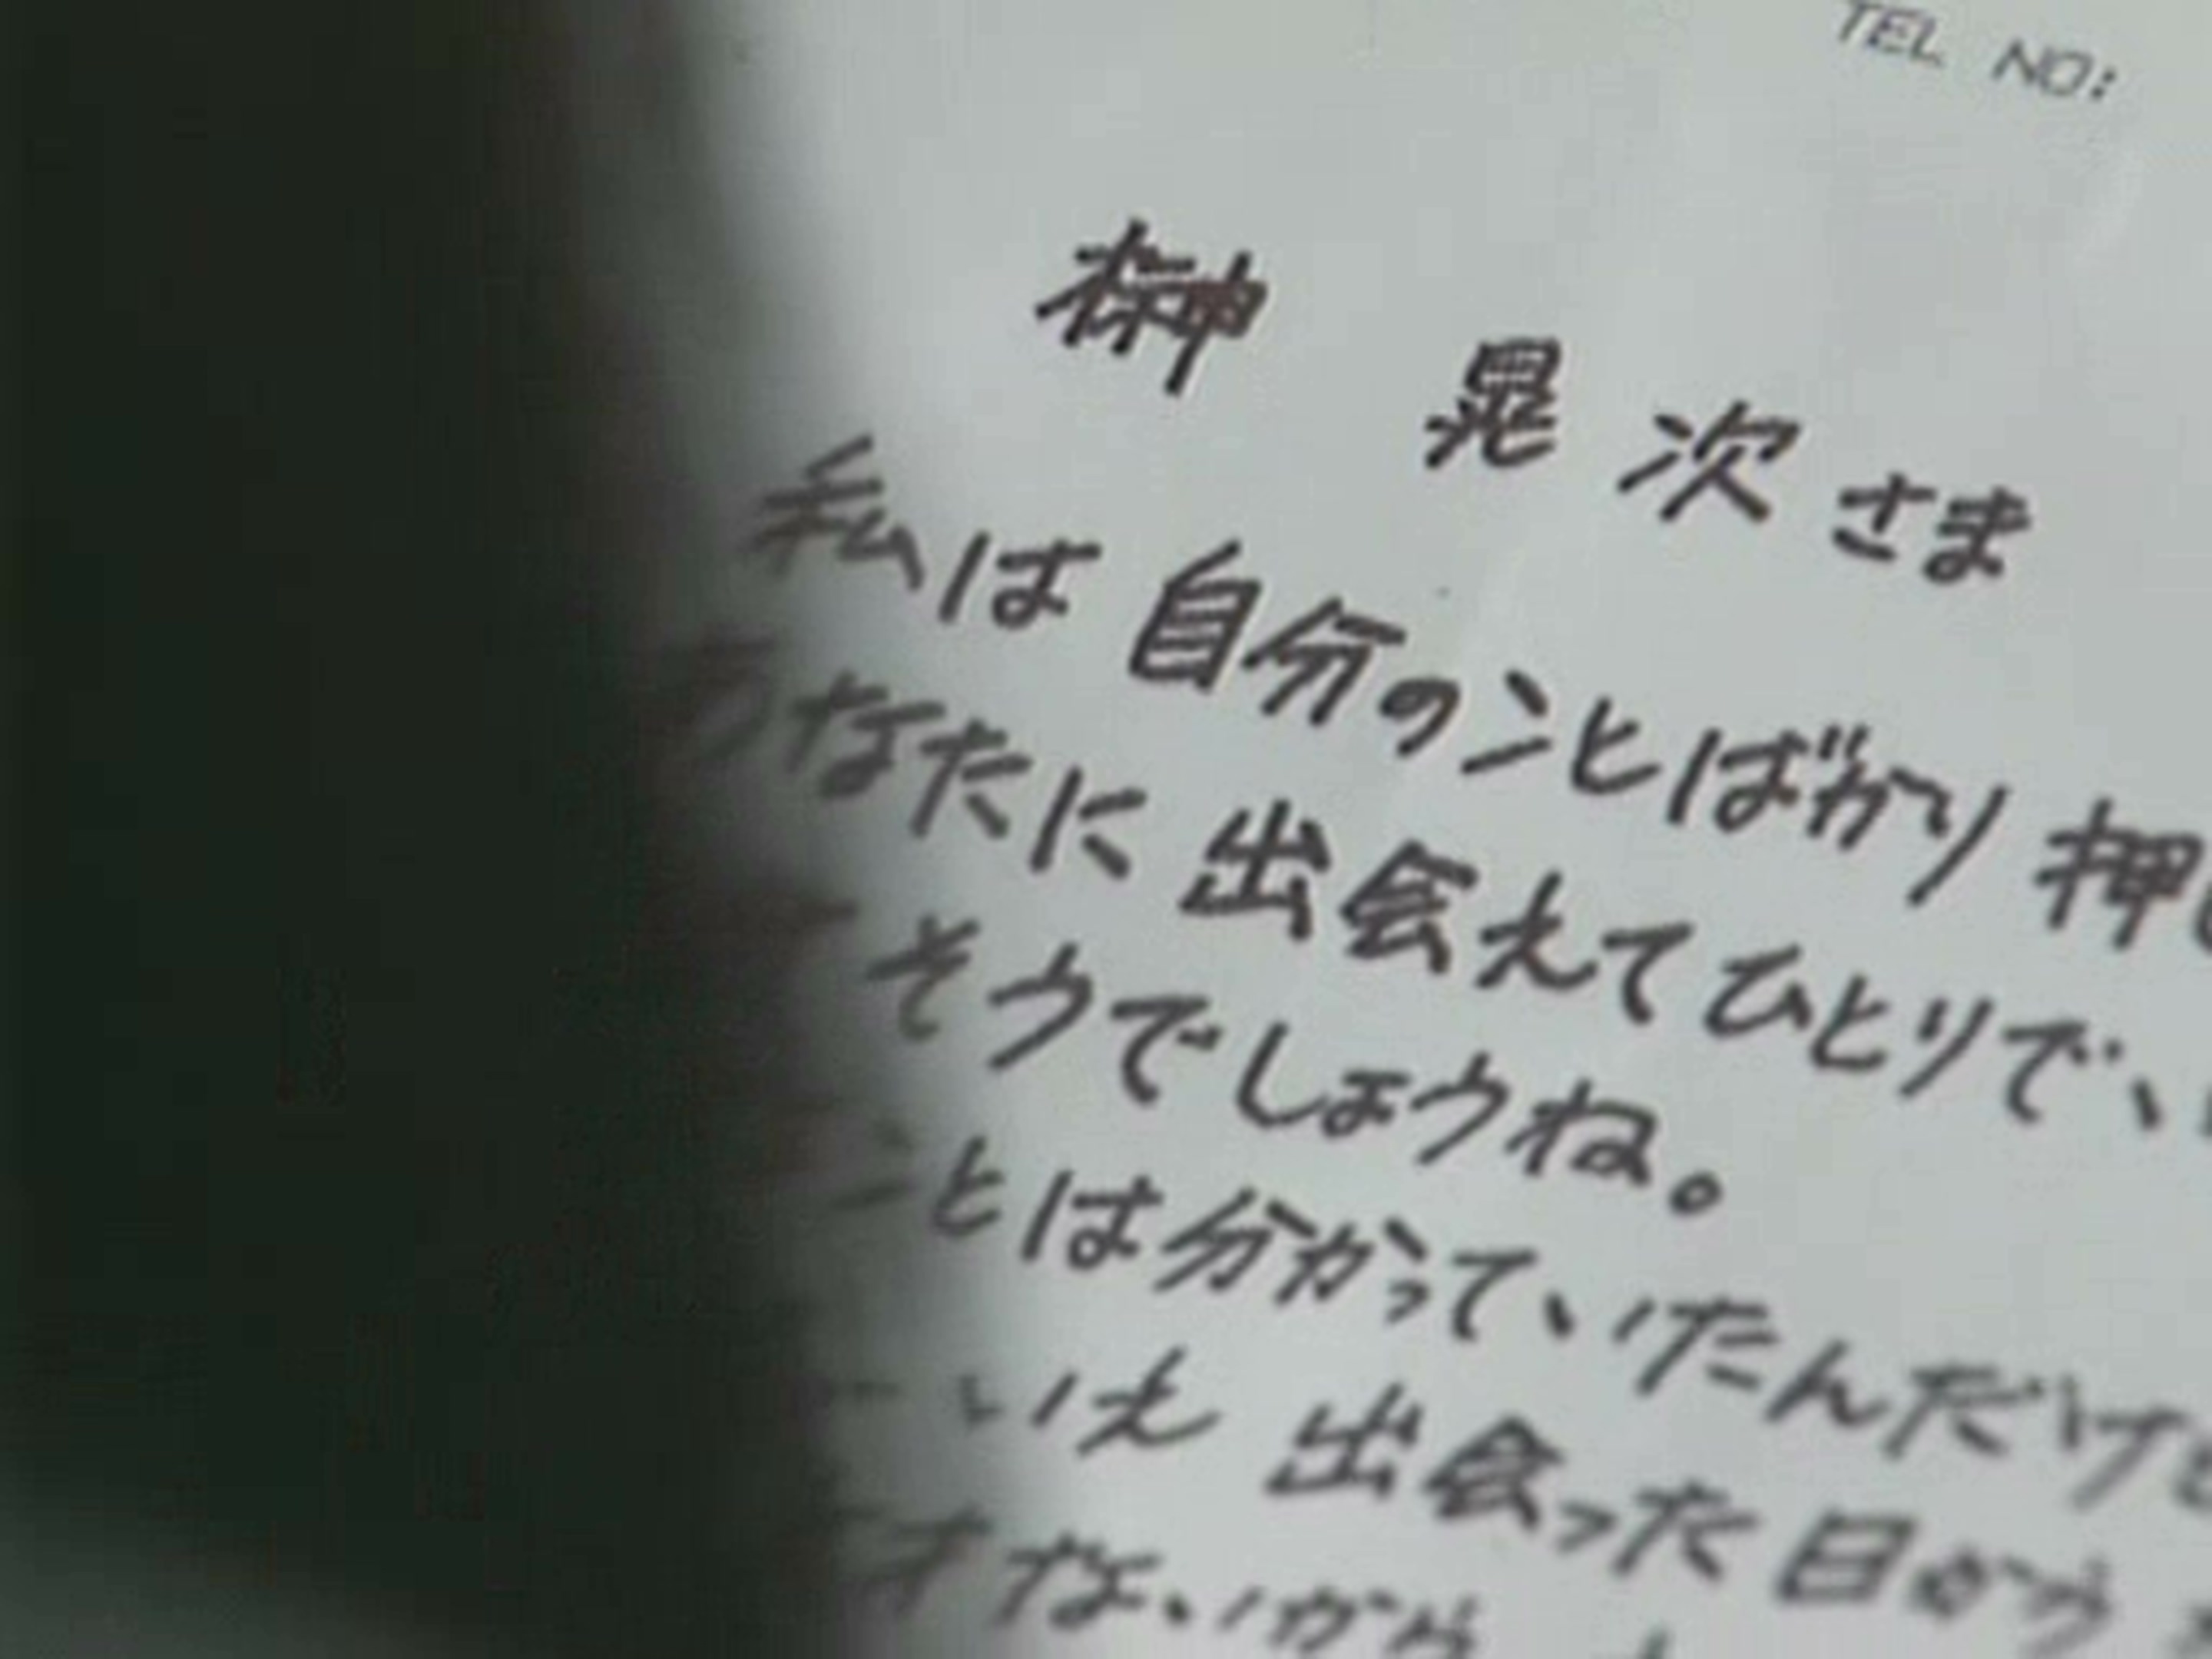 TEL NO:
榊 晃次さま
私は自分のことばかり押し
あなたに出会えてひとりで、
そうでしょうね。
ことは分かっていたんだけど
いえ 出会った日から
ないから